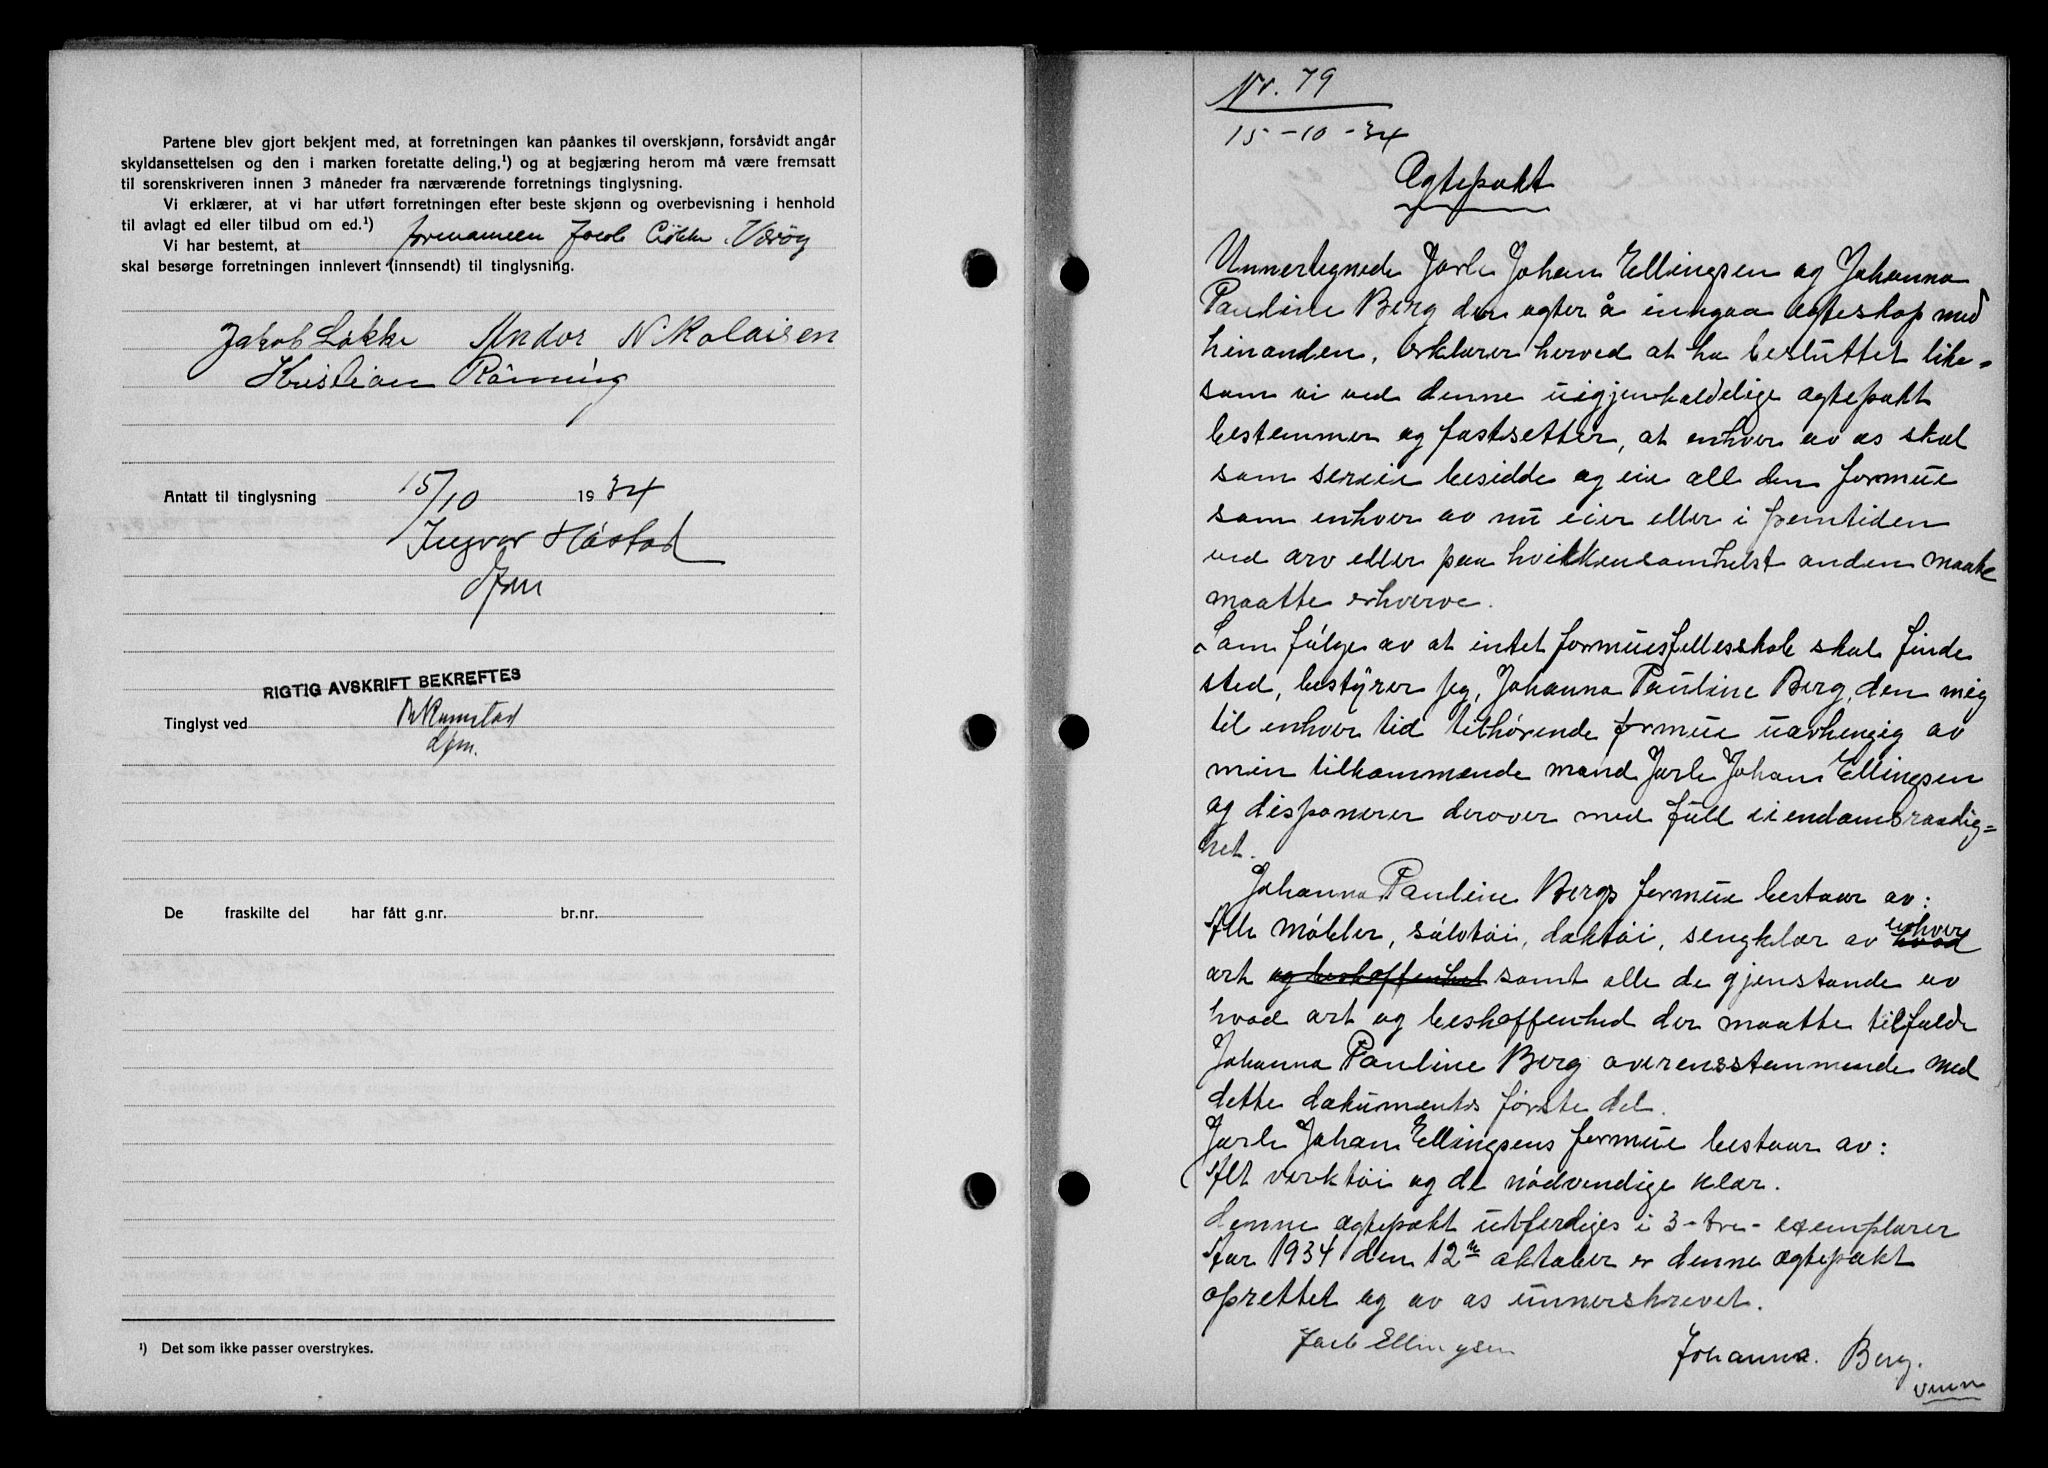 Partene blev gjort bekjent med, at forretningen kan påankes til overskjønn, forsåvidt angår
skyldansettelsen og den i marken foretatte deling,¹) og at begjæring herom må være fremsatt
til sorenskriveren innen 3 måneder fra nærværende forretnings tinglysning.
Vi erklærer, at vi har utført forretningen efter beste skjønn og overbevisning i henhold
til avlagt ed eller tilbud om ed.¹)
Vi har bestemt, at formannen Jacob Løkke, Værøy
skal besørge forretningen innlevert (innsendt) til tinglysning.
Jakob Løkke Andor Nikolaisen
Kristian Rønning
Antatt til tinglysning 15/10 1934
Ingvar Håstad
RIGTIG AVSKRIFT BEKREFTES
Tinglyst ved
De fraskilte del har fått g.nr. br.nr.
¹) Det som ikke passer overstrykes.
Nr. 79
15-10-34
Ægtepakt
Unnertegnede Jarle Johan Ellingsen og Johanna
Pauline Berg der agter å inngaa ægteskap med
hinanden, erklærer herved at ha besluttet like-
som vi ved denne uigjenkaldelige ægtepakt
bestemmer og fastsetter, at enhver av os skal
som sereie besidde og eie all den formue
som enhver av nu eier eller i fremtiden
ved arv eller paa hvilkensomhelst anden maate
maatte erhverve.
Som følge av at intet formuesfellesskab skal finde
sted, bestyrer jeg, Johanna Pauline Berg, den mig
til enhver tid tilhørende formue uavhengig av
min tilkommende mand Jarle Johan Ellingsen
og disponerer derover med full eiendomsraadig=
het.
Johanna Pauline Bergs formue bestaar av:
Alle møbler, sølvtøi, dæktøi, sengklær av hvad enhver
art og beskaffenhet samt alle de gjenstande av
hvad art og beskaffenhed der maatte tilfalde
Johanna Pauline Berg overensstemmende med
dette dokuments første del.
Jarle Johan Ellingsens formue bestaar av:
Alt verktøi og de nødvendige klær.
Denne ægtepakt utferdiges i 3-tre- exemplarer
Aar 1934 den 12te oktober er denne ægtepakt
oprettet og av os unnerskrevet.
Jarle Ellingsen Johanna Berg.